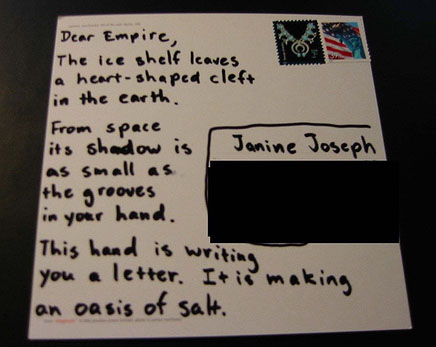 Dear Empire,
The ice shelf leaves
a heart-shaped cleft
in the earth.
From space
its shadow is
as small as
the grooves
in your hand.
Janine Joseph
This hand is writing
you a letter. It is making
an oasis of salt.